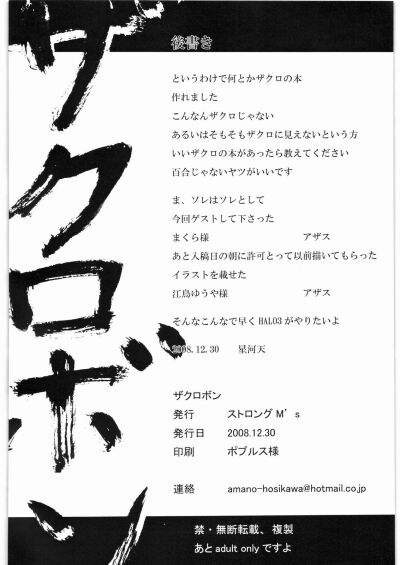 ザクロボン
後書き
というわけで何とかザクロの本
作れました
こんなんザクロじゃない
あるいはそもそもザクロに見えないという方
いいザクロの本があったら教えてください
百合じゃないヤツがいいです
ま、ソレはソレとして
今回ゲストして下さった
まくら様　アザス
あと入稿日の朝に許可とって以前描いてもらった
イラストを載せた
江鳥ゆうや様　アザス
そんなこんなで早くHALO3がやりたいよ
2008.12.30　星河天
ザクロボン
発行　ストロングM’s
発行日　2008.12.30
印刷　ポプルス様
連絡　amano-hosikawa@hotmail.co.jp
禁・無断転載、複製
あとadult onlyですよ